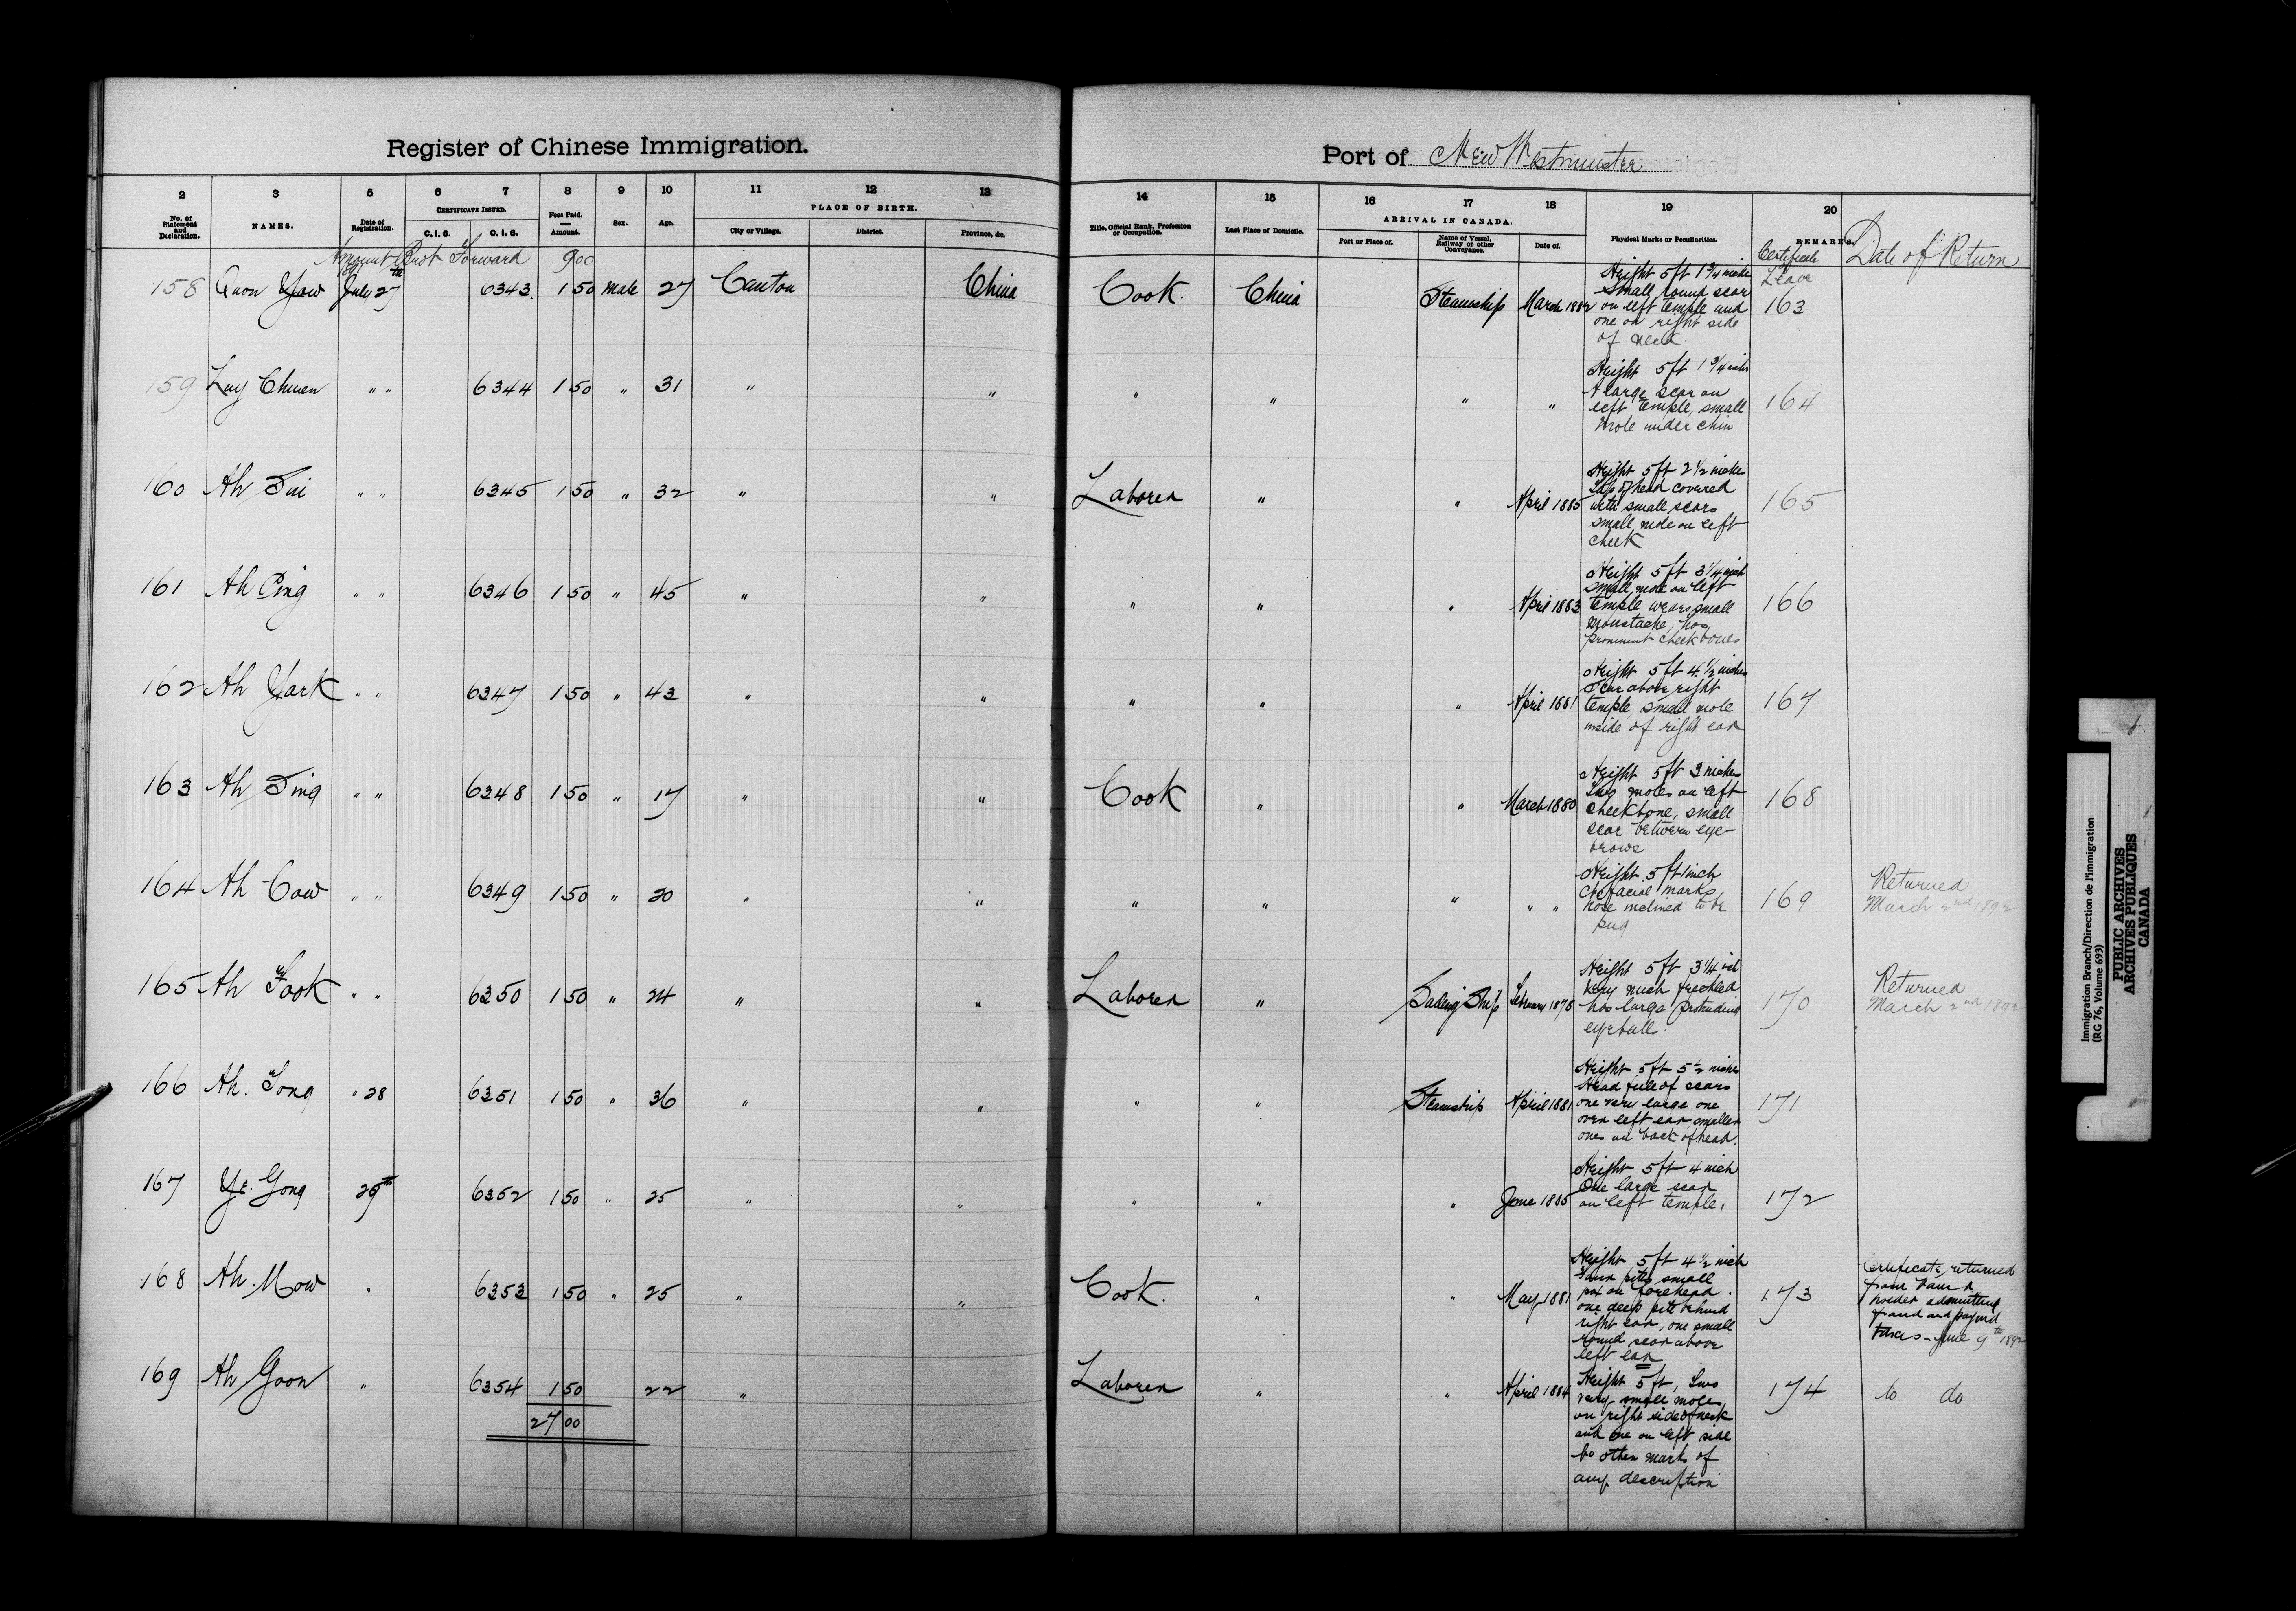 Register of Chinese Immigration.
Port of New Westminster
2 3 5 6 7 8 9 10 11 12 13 14 15 16 17 18 19 20
No. of Statement and Declaration.
NAMES.
Date of Registration.
CERTIFICATE ISSUED.
C. I. 5.
C. I. 6.
Fees Paid.
Amount.
Sex.
Age.
PLACE OF BIRTH.
City or Village.
District.
Province, &c.
Title, Official Rank, Profession or Occupation.
Last Place of Domicile.
ARRIVAL IN CANADA.
Port or Place of.
Name of Vessel, Railway or other Conveyance.
Date of.
Physical Marks or Peculiarities.
REMARKS.
Certificate
Leave
Date of Return
Amount Brot Forward 900
158 Quon Yow July 27th 6343 1 50 Male 27 Canton China Cook. China Steamship March 1882
Height 5 ft 1 3/4 inches
Small round scar
on left temple and
one on right side
of neck
163
159 Luy Chuen " " 6344 1 50 " 31 " " " " " "
Height 5 ft 1 3/4 inches
A large scar on
left temple, small
mole under chin
164
160 Ah Sui " " 6345 1 50 " 32 " " Laborer " " April 1885
Height 5 ft 2 1/2 inches
Top of head covered
with small scars
small mole on left
cheek
165
161 Ah Ping " " 6346 1 50 " 45 " " " " " April 1883
Height 5 ft 3 1/4 inch
small mole on left
temple wears small
moustache, has
prominent cheek bones
166
162 Ah Yark " " 6347 1 50 " 43 " " " " " April 1881
Height 5 ft 4 1/2 inches
Scar above right
temple small mole
inside of right ear
167
163 Ah Sing " " 6348 1 50 " 17 " " Cook " " March 1880
Height 5 ft 3 inches
Two moles on left
cheekbone, small
scar between eye-
brows
168
164 Ah Cow " " 6349 1 50 " 20 " " " " " " "
Height 5 ft 1 inch
No facial marks,
nose inclined to be
pug
169
Returned
March 2nd 1892
165 Ah Fook " " 6350 1 50 " 24 " " Laborer " Sailing Ship February 1878
Height 5 ft 3 1/4 inch
Very much freckled
has large protruding
eyeballs.
170
Returned
March 2nd 1892
166 Ah. Song " 28 6351 1 50 " 36 " " " " Steamship April 1881
Height 5 ft 5 1/2 inches
Head full of scars
one very large one
over left ear smaller
ones on back of head.
171
167 Ye. Gong 29th 6352 1 50 " 25 " " " " " June 1885
Height 5 ft 4 inch
One large scar
on left temple,
172
168 Ah. Mow " 6353 1 50 " 25 " " Cook. " " May 1881
Height 5 ft 4 1/2 inch
pits small
pox on forehead.
one deep pit behind
right ear, one small
round scar above
left ear
173
Certificate returned
from
holder admitting
fraud and paying
taxes - June 9th 1892
169 Ah Goon " 6354 1 50 22 " Laborer " " April 1884
Height 5 ft, Two
very small moles
on right side of neck
and one on left side
No other mark of
any description
174
do do
27 00
Immigration Branch/Direction de l'immigration
(RG 76, Volume 693)
PUBLIC ARCHIVES
ARCHIVES PUBLIQUES
CANADA